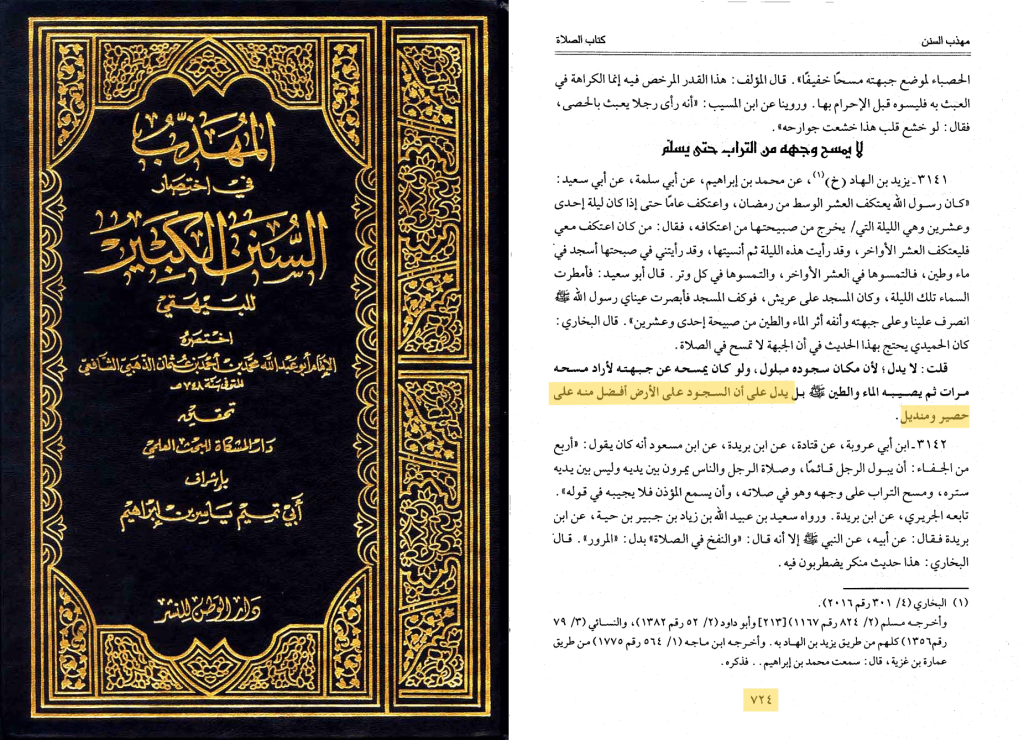 المهذب
في اختصار
السنن الكبير
للبيهقي
اختصره
الإمام أبو عبد الله محمد بن أحمد بن عثمان الذهبي الشافعي
المتوفى سنة ٧٤٨ هـ
تحقيق
دار المشكاة للبحث العلمي
بإشراف
أبي تميم ياسر بن إبراهيم
دار الوطن للنشر
مهذب السنن
كتاب الصلاة
الحصباء لموضع جبهته مسحًا خفيفًا». قال المؤلف: هذا القدر المرخص فيه إنما الكراهة في
العبث به فليسوه قبل الإحرام بها. وروينا عن ابن المسيب: «أنه رأى رجلا يعبث بالحصى،
فقال: لو خشع قلب هذا خشعت جوارحه».
لا يمسح وجهه من التراب حتى يسلم
٣١٤١ـ يزيد بن الهاد (خ)(١)، عن محمد بن إبراهيم، عن أبي سلمة، عن أبي سعيد:
«كان رسول الله يعتكف العشر الوسط من رمضان، واعتكف عامًا حتى إذا كان ليلة إحدى
وعشرين وهي الليلة التي/ يخرج من صبيحتها من اعتكافه، فقال: من كان اعتكف معي
فليعتكف العشر الأواخر، وقد رأيت هذه الليلة ثم أنسيتها، وقد رأيتني في صبحتها أسجد في
ماء وطين، فالتمسوها في العشر الأواخر، والتمسوها في كل وتر. قال أبو سعيد: فأمطرت
السماء تلك الليلة، وكان المسجد على عريش، فوكف المسجد فأبصرت عيناي رسول الله ﷺ
انصرف علينا وعلى جبهته وأنفه أثر الماء والطين من صبيحة إحدى وعشرين». قال البخاري:
كان الحميدي يحتج بهذا الحديث في أن الجبهة لا تمسح في الصلاة.
قلت: لا يدل؛ لأن مكان سجوده مبلول، ولو كان يمسحه عن جبهته لأراد مسحه
مرات ثم يصيبه الماء والطين ﷺ بل يدل على أن السجود على الأرض أفضل منه على
حصير ومنديل.
٣١٤٢ـ ابن أبي عروبة، عن قتادة، عن ابن بريدة، عن ابن مسعود أنه كان يقول: «أربع
من الجفاء: أن يبول الرجل قائمًا، وصلاة الرجل والناس يمرون بين يديه وليس بين يديه
ستره، ومسح التراب على وجهه وهو في صلاته، وأن يسمع المؤذن فلا يجيبه في قوله».
تابعه الجريري، عن ابن بريدة. ورواه سعيد بن عبيد الله بن زياد بن جبير بن حية، عن ابن
بريدة فقال: عن أبيه، عن النبي ﷺ إلا أنه قال: «والنفخ في الصلاة» بدل: «المرور». قال
البخاري: هذا حديث منكر يضطربون فيه.
(١) البخاري (٤/ ٣٠١ رقم ٢٠١٦).
وأخرجه مسلم (٢/ ٨٢٤ رقم ١١٦٧) [٢١٣] وأبو داود (٢/ ٥٢ رقم ١٣٨٢)، والنسائي (٣/ ٧٩
رقم ١٣٥٦) كلهم من طريق يزيد بن الهاد به. وأخرجه ابن ماجه (١/ ٥٦٤ رقم ١٧٧٥) من طريق
عمارة بن غزية، قال: سمعت محمد بن إبراهيم.. فذكره.
٧٢٤